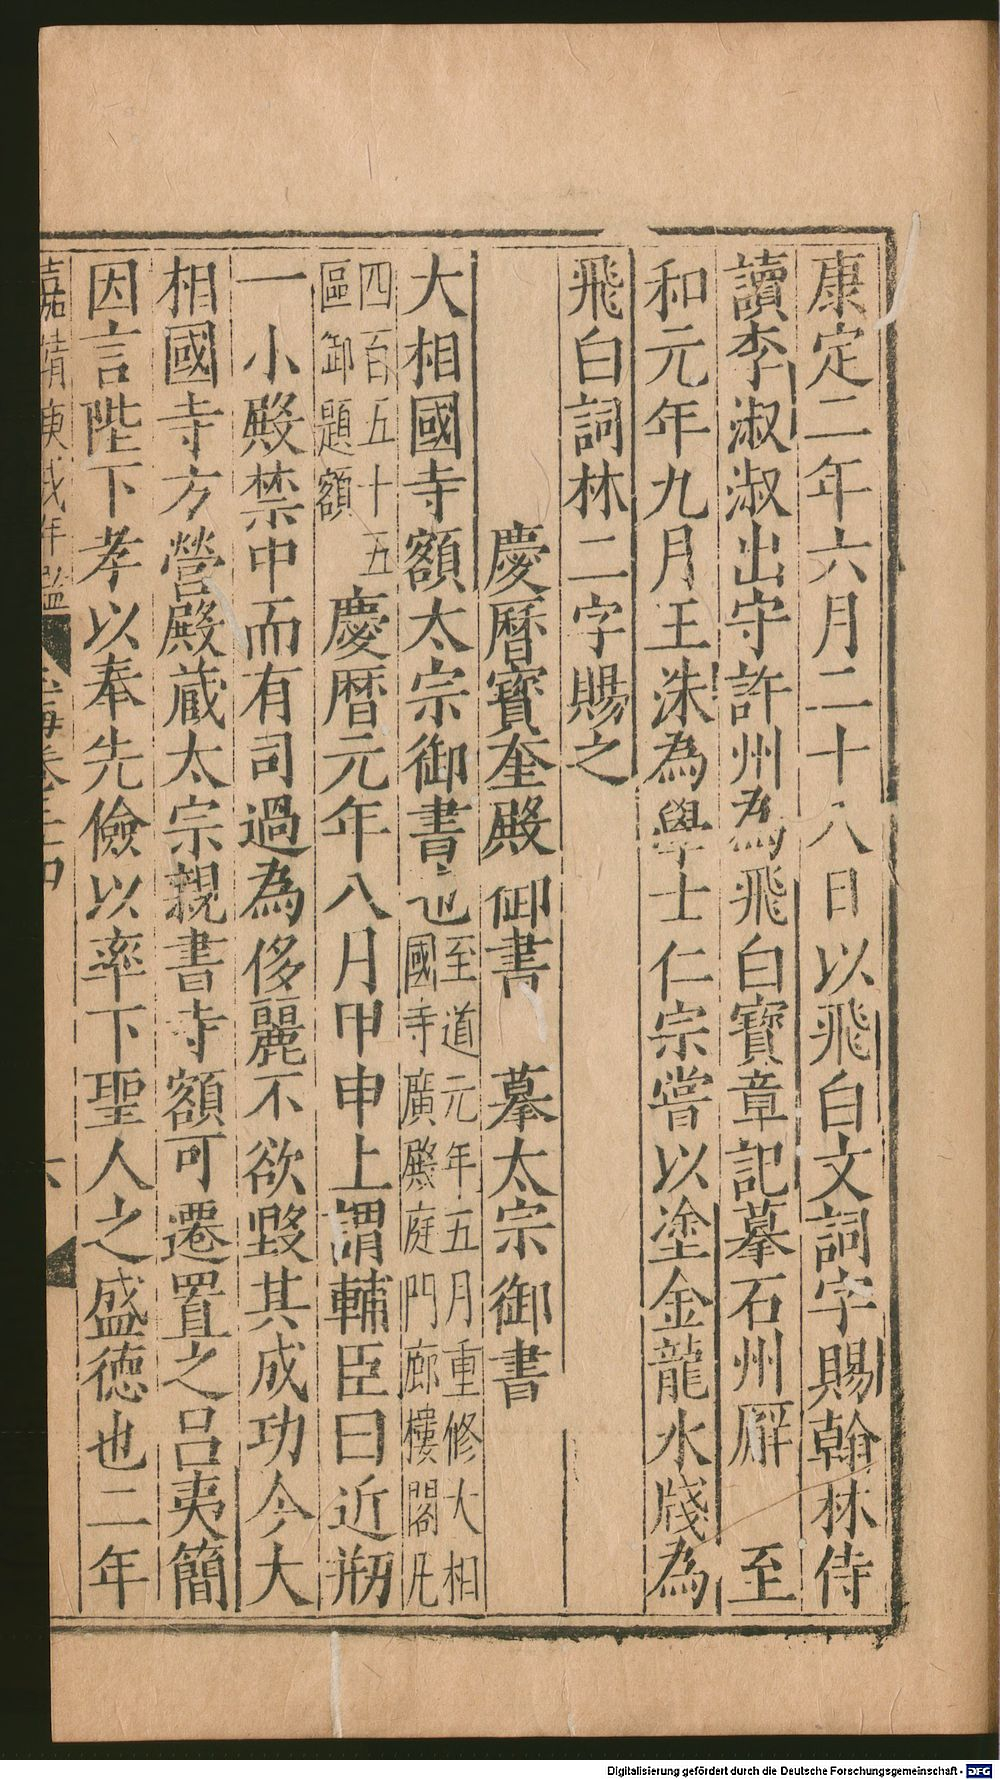 康定二年六月二十八日以飛白文詞字賜翰林侍
讀李淑淑出守許州為飛白寶章記摹石州廨　至
和元年九月王洙為學士仁宗嘗以塗金龍水牋為
飛白詞林二字賜之
慶曆寶奎殿御書　摹太宗御書
大相國寺額太宗御書也至道元年五月重修大相
國寺廣殿庭門廊樓閣凡
四百五十五
區御題額
慶曆元年八月甲申上謂輔臣曰近剏
一小殿禁中而有司過為侈麗不欲毀其成功今大
相國寺方營殿藏太宗親書寺額可遷置之呂夷簡
因言陛下孝以奉先儉以率下聖人之盛德也二年
嘉靖庚戌年
六
Digitalisierung gefördert durch die Deutsche Forschungsgemeinschaft - DFG